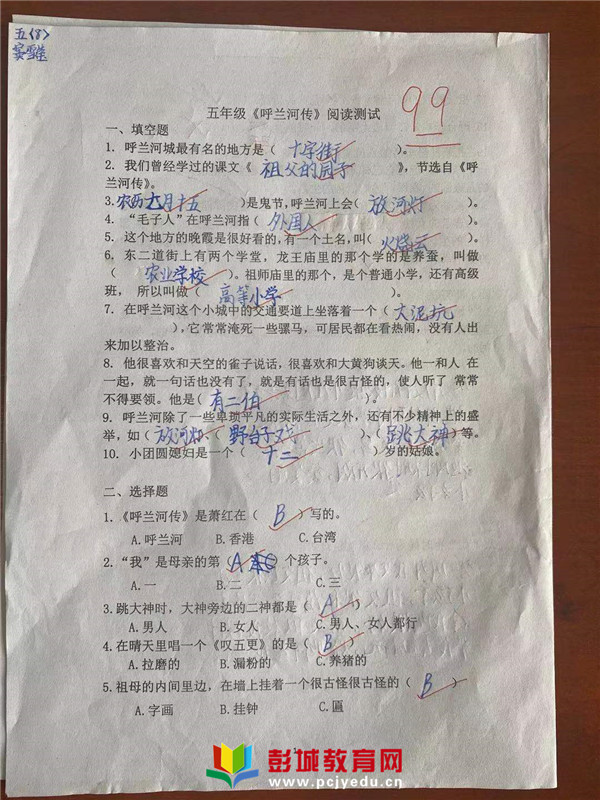 五〈8〉
99
五年级《呼兰河传》阅读测试
一、填空题
1. 呼兰河城最有名的地方是（ 十字街 ）。
2. 我们曾经学过的课文《 祖父的园子 》，节选自《呼
兰河传》。
3.农历七月十五 ）是鬼节,呼兰河上会（ 放河灯 ）。
4. “毛子人”在呼兰河指（ 外国人 ）。
5. 这个地方的晚霞是很好看的,有一个土名,叫（ 火烧云 ）。
6. 东二道街上有两个学堂，龙王庙里的那个学的是养蚕，叫做
（ 农业学校 ）。祖师庙里的那个，是个普通小学，还有高级
班， 所以叫做（ 高等小学 ）。
7. 在呼兰河这个小城中的交通要道上坐落着一个（ 大泥坑
），它常常淹死一些骡马，可居民都在看热闹，没有人出
来加以整治。
8. 他很喜欢和天空的雀子说话，很喜欢和大黄狗谈天。他一和人 在
一起，就一句话也没有了，就是有话也是很古怪的，使人听了 常常
不得要领。他是（ 有二伯 ）
9. 呼兰河除了一些卑琐平凡的实际生活之外，还有不少精神上的盛
举，如（ 放河灯、（ 野台子戏 ）、（ 跳大神 ）等。
10. 小团圆媳妇是一个（ 十二 ）岁的姑娘。
二、选择题
1.《呼兰河传》是萧红在（ B ）写的。
A.呼兰河 B.香港 C.台湾
2.“我”是母亲的第（ A 个孩子。
A.一 B.二 C.三
3.跳大神时，大神旁边的二神都是（ A ）
A.男人 B.女人 C.男人、女人都行
4.在晴天里唱一个《叹五更》的是（ B ）
A.拉磨的 B.漏粉的 C.养猪的
5.祖母的内间里边，在墙上挂着一个很古怪很古怪的（ B ）
A.字画 B.挂钟 C.匾
1
彭城教育网
www.pcjyedu.cn